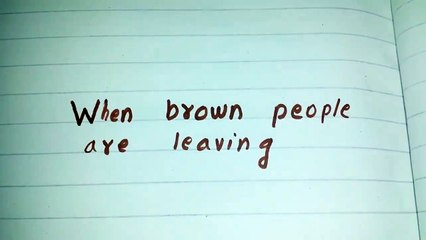 When brown people
are leaving